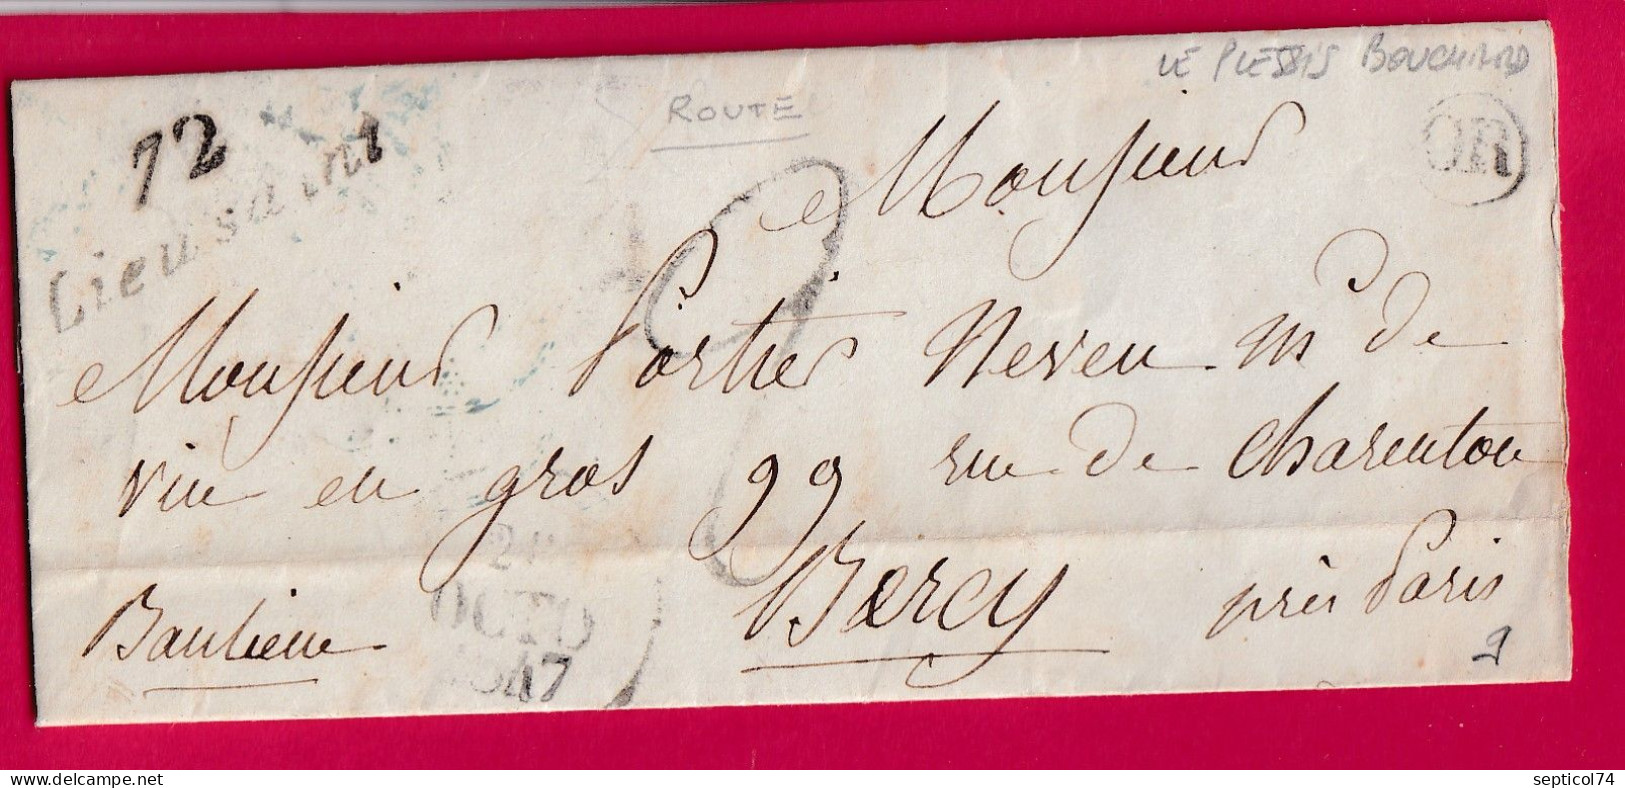 LE PLESSIS BOUCHARD
ROUTE
OR
72
Lieusaint
Monsieur
Monsieur Portier Neveu md de
vin en gros 99 rue de Charenton
Bercy près Paris
Banlieue
OCTO
47
2
septicol74